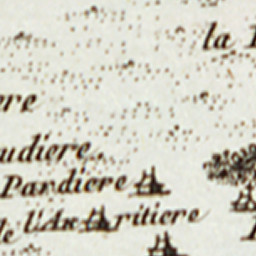 la
ere
udiere
Pardiere
le l'An ritiere